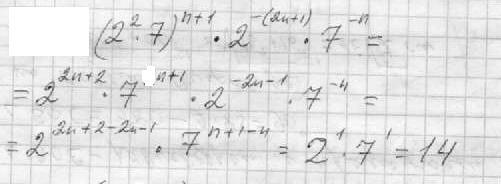 (2²·7)ⁿ⁺¹ · 2⁻⁽²ⁿ⁺¹⁾ · 7⁻ⁿ =
= 2²ⁿ⁺² · 7ⁿ⁺¹ · 2⁻²ⁿ⁻¹ · 7⁻⁴ =
= 2²ⁿ⁺²⁻²ⁿ⁻¹ · 7ⁿ⁺¹⁻⁴ = 2¹·7¹ = 14